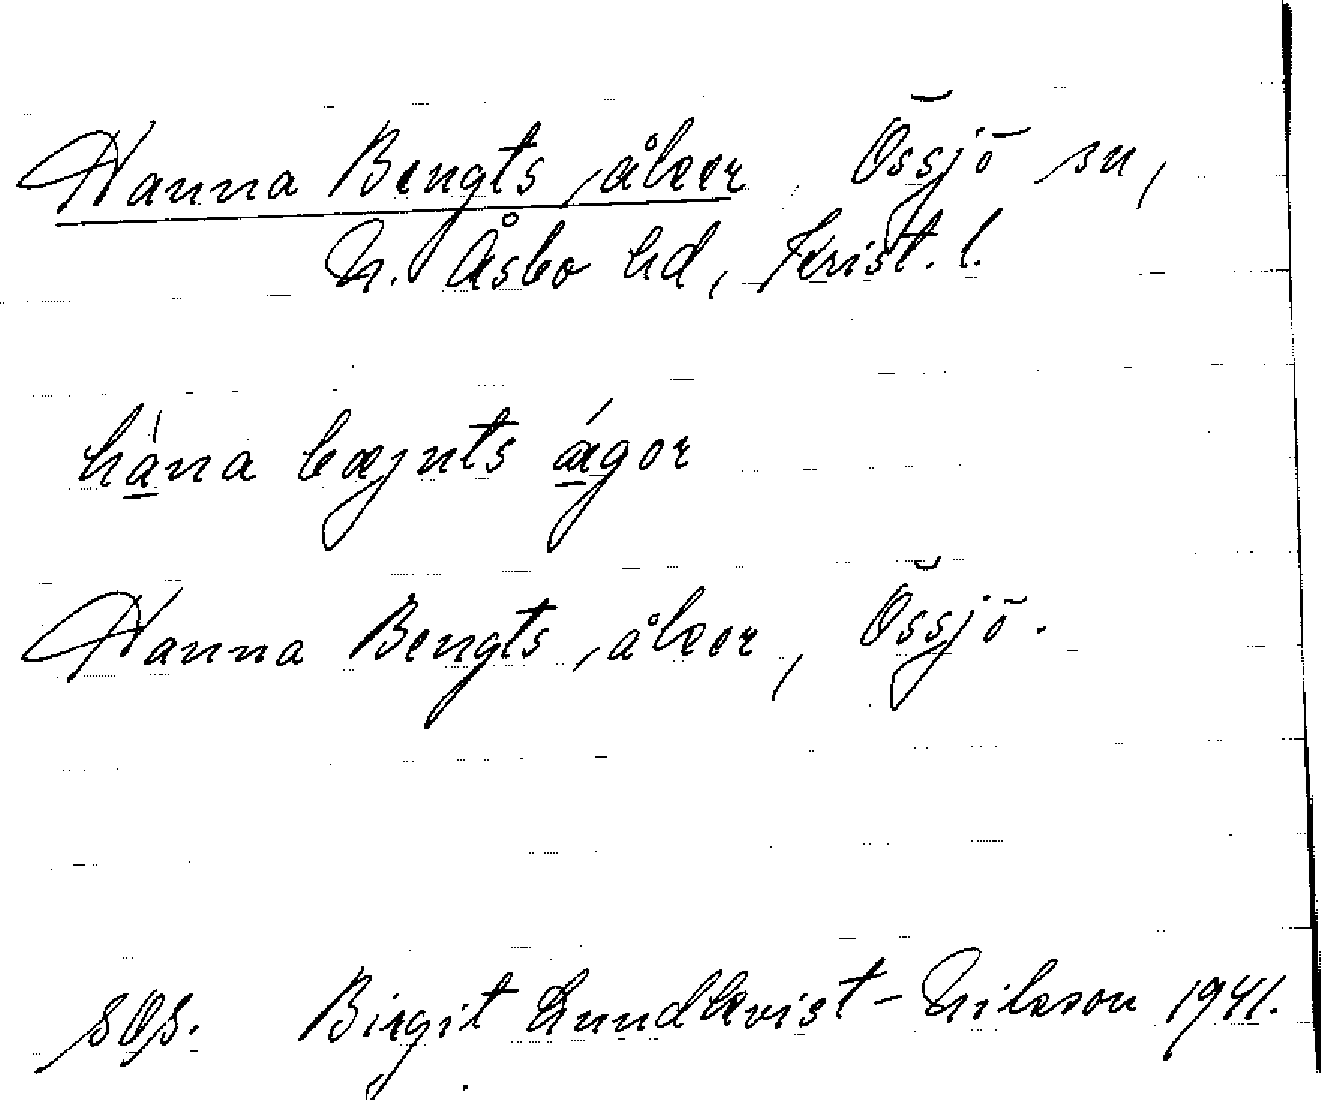 Hanna Bengts åkrar, Össjö sn,
N. Åsbo hd, Krist. l.
hána bæjnts ágor
Hanna Bengts åkrar, Össjö.
Birgit Lundkvist-Nilsson 1941.